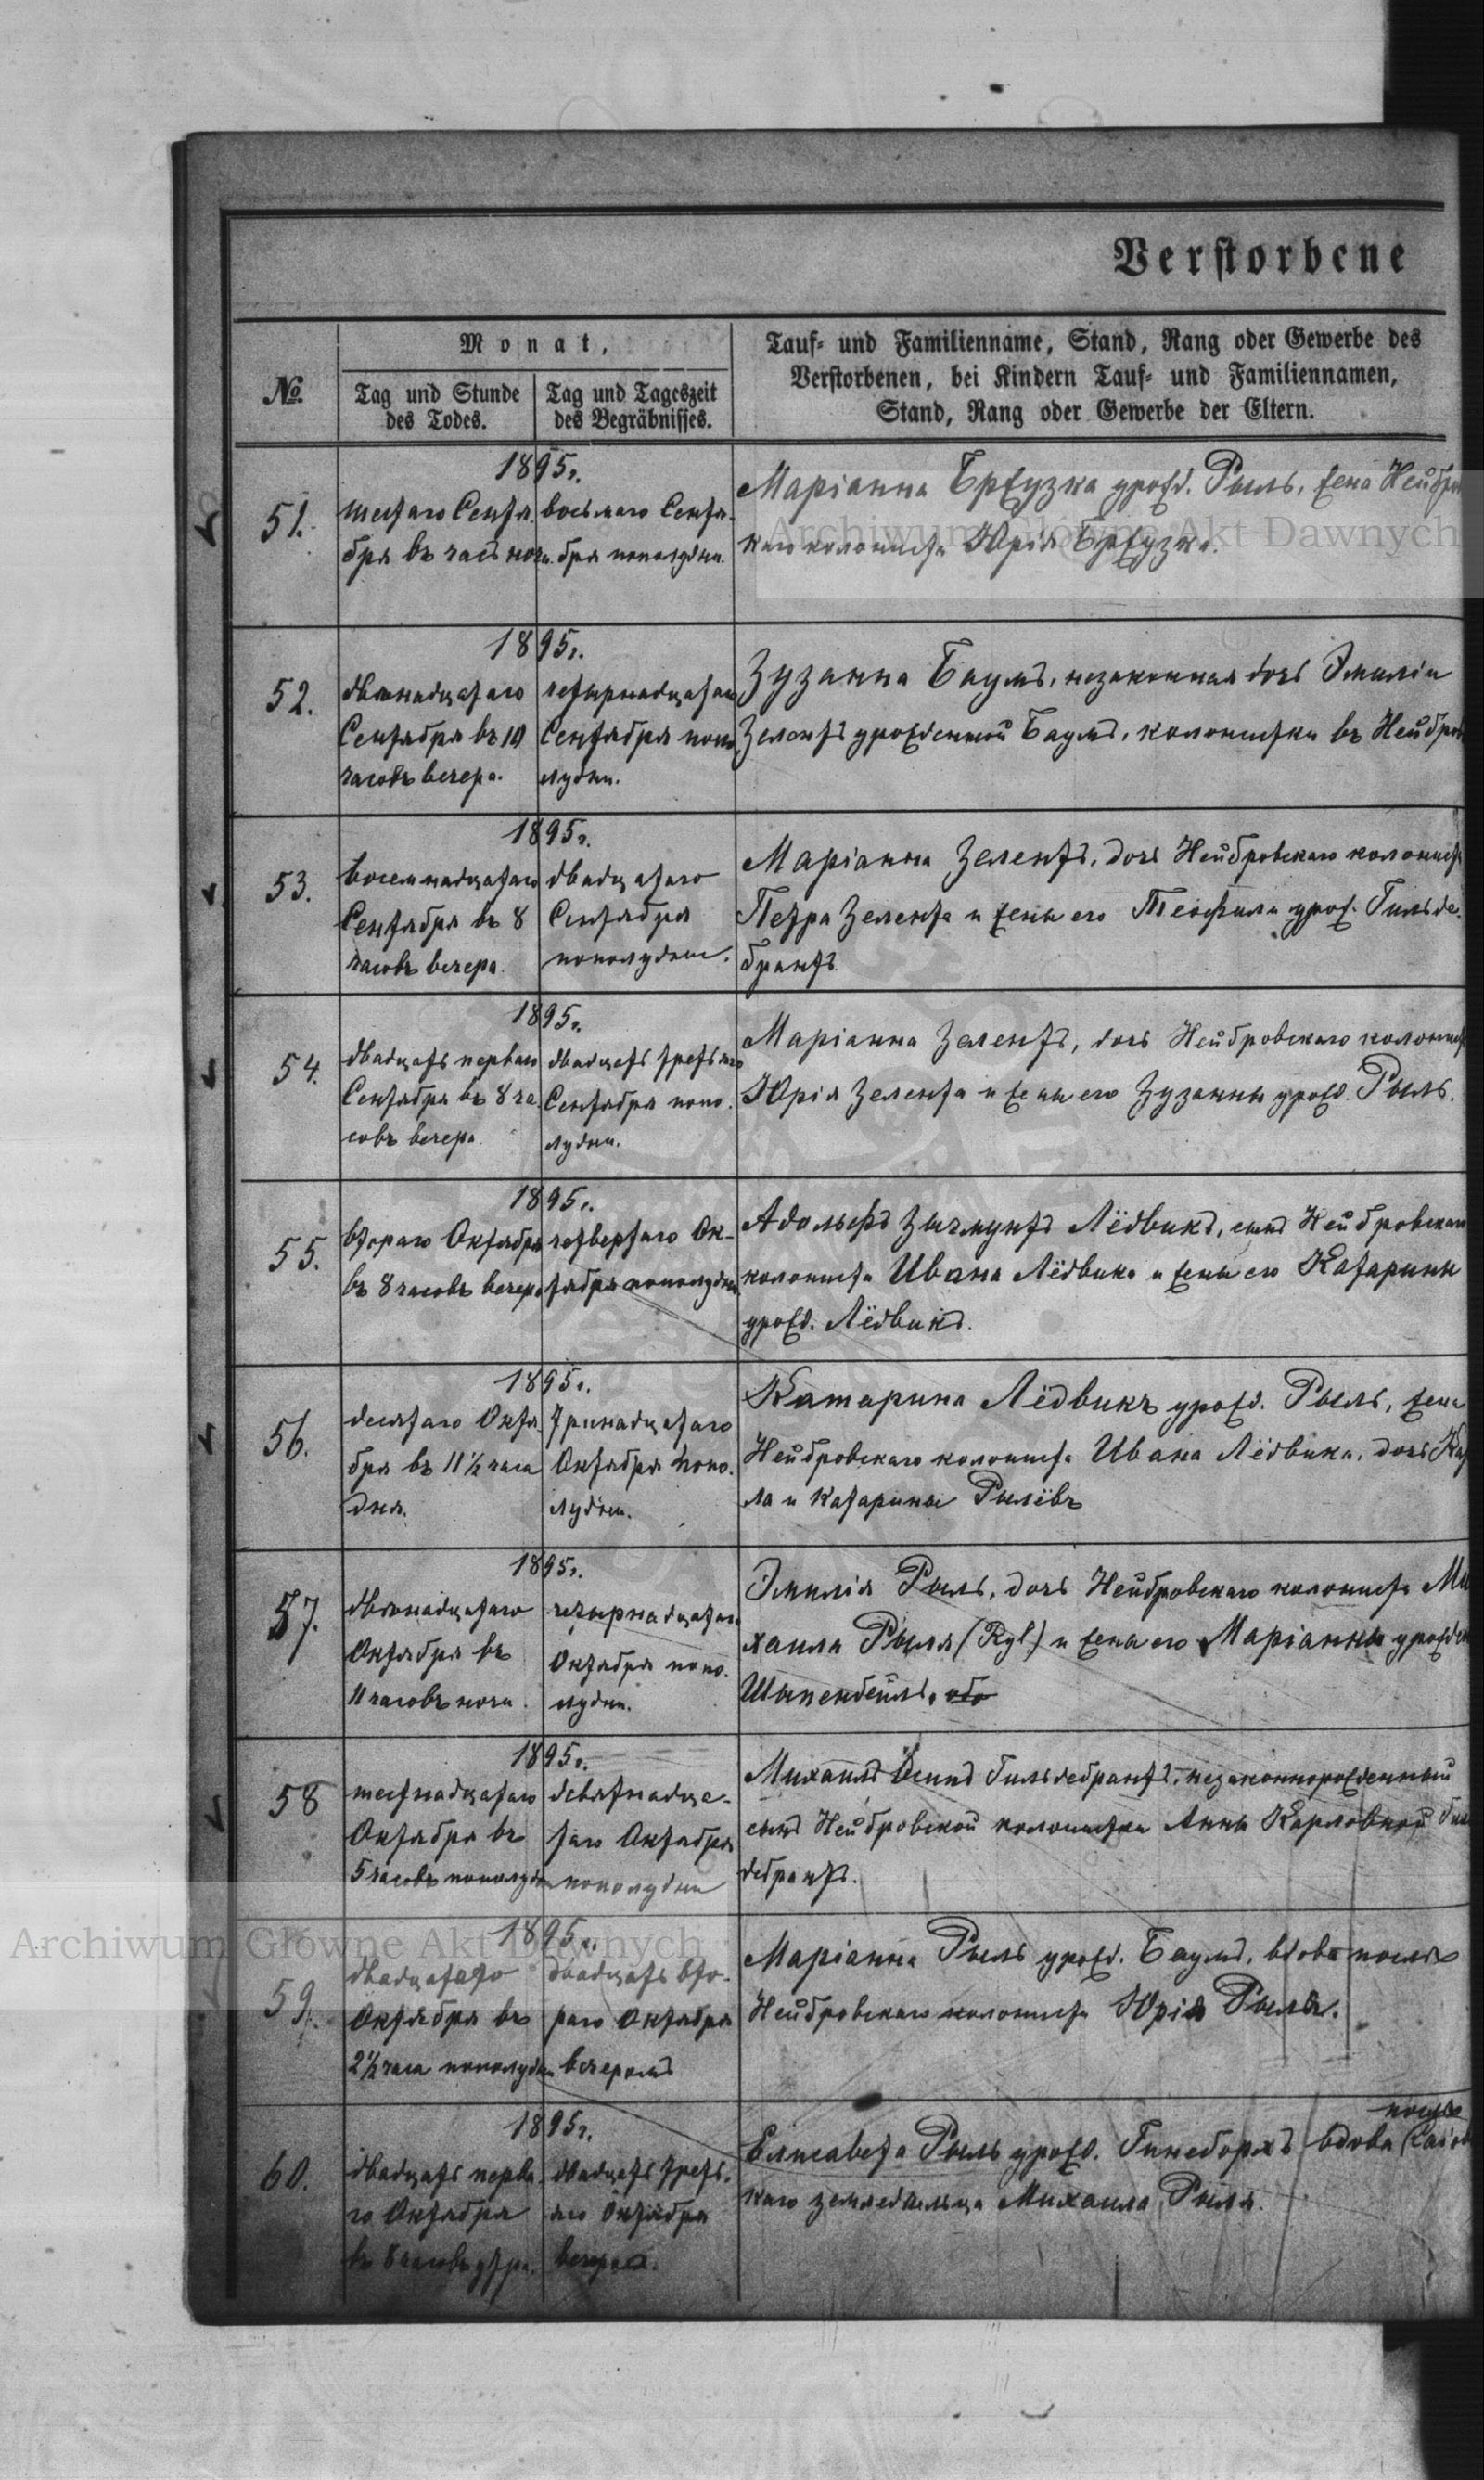 Verstorbene
№
Monat,
Tag und Stunde
des Todes.
Tag und Tageszeit
des Begräbnisses.
Tauf- und Familienname, Stand, Rang oder Gewerbe des
Verstorbenen, bei Kindern Tauf- und Familiennamen,
Stand, Rang oder Gewerbe der Eltern.
51.
1895г.
шестаго Сентя-
бря въ часъ ночи.
восьмаго Сентя-
бря пополудни.
Маріанна Бржузка урожд. Рыль, жена Нейбров
каго колониста Юрія Бржузка.
52.
1895г.
двѣнадцатаго
Сентября въ 10
часовъ вечера.
четырнадцатаго
Сентября попо
лудни.
Зузанна Баумъ, незаконная дочь Эмиліи
Зелентъ урожденной Баумъ, колонистки въ Нейбров
53.
1895г.
восемнадцатаго
Сентября въ 8
часовъ вечера.
двадцатаго
Сентября
пополудни.
Маріанна Зелентъ, дочь Нейбровскаго колониста
Петра Зелента и жены его Теофили урож. Гильде-
брантъ.
54.
1895г.
двадцать перваго
Сентября въ 8 ча
совъ вечера.
двадцать третьяго
Сентября попо-
лудни.
Маріанна Зелентъ, дочь Нейбровскаго колониста
Юрія Зелента и жены его Зузанны урожд. Рыль.
55.
1895г.
втораго Октября
въ 8 часовъ вечера
четвертаго Ок-
тября пополудни
Адольфъ Зыгмунтъ Лёдвикъ, сынъ Нейбровскаго
колониста Ивана Лёдвика и жены его Катарины
урожд. Лёдвикъ.
56.
1895г.
десятаго Октя
бря въ 11½ часа
дня.
тринадцатаго
Октября попо-
лудни.
Катарина Лёдвикъ урожд. Рыль, жена
Нейбровскаго колониста Ивана Лёдвика, дочь Кар
ла и Катарины Рылёвъ
57.
1895г.
двѣнадцатаго
Октября въ
11 часовъ ночи.
четырнадцатаго
Октября попо-
лудни.
Эмилія Рыль, дочь Нейбровскаго колониста Ми
хаила Рыля (Ryl) и жены его Маріанны урожден
58
1895г.
шестнадцатаго
Октября въ
5 часовъ пополудни
девятнадца-
таго Октября
пополудни
Михаилъ Осипъ Гильдебрантъ, незаконнорожденный
сынъ Нейбровской колонистки Анны Карловной Гиль
дебрантъ.
59.
1895г.
двадцатаго
Октября въ
2½ часа пополудни
двадцать вто-
раго Октября
вечеромъ
Маріанна Рыль урожд. Баумъ, вдова послѣ
Нейбровскаго колониста Юрія Рыля.
60.
1895г.
двадцать перва
го Октября
въ 8 часовъ утра.
двадцать треть-
яго Октября
вечера.
послѣ
Елисавета Рыль урожд. Гинеборхъ вдова
каго земледѣльца Михаила Рыля.
Archiwum Główne Akt Dawnych
Archiwum Główne Akt Dawnych